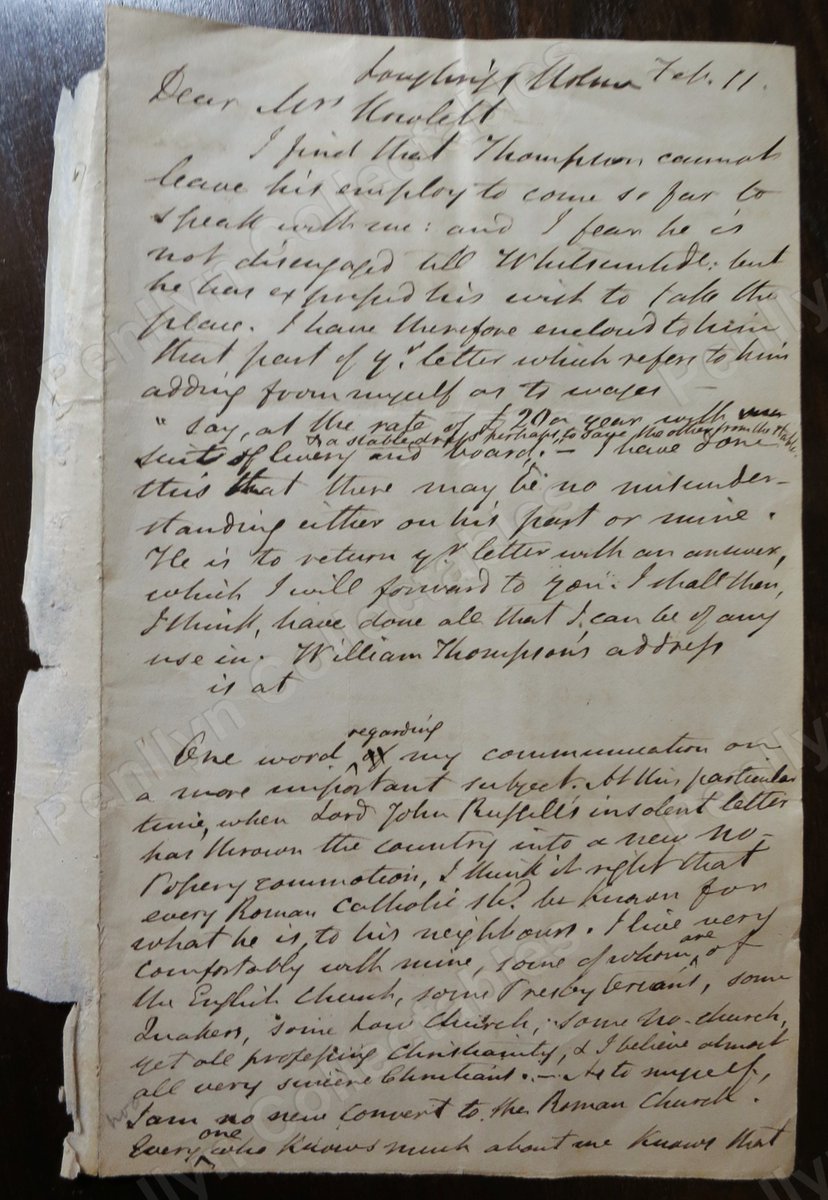 Loughrigg Holme Feb. 11.
Dear Mrs Howlett
I find that Thompson cannot
leave his employ to come so far to
speak with me: and I fear he is
not disengaged till Whitsuntide: but
he has expressed his wish to take the
place. I have therefore enclosed to him
that part of yr. letter which refers to him
adding from myself as to wages —
"say, at the rate of £20 a year with
& a stable dress perhaps, to save the other from the stable
suit of livery and board." — I have done
this that there may be no misunder-
standing either on his part or mine.
He is to return yr. letter with an answer,
which I will forward to you. I shall then,
I think, have done all that I can be of any
use in. William Thompson's address
is at
regarding
One word my communication on
a more important subject. At this particular
time, when Lord John Russell's insolent letter
has thrown the country into a new no-
Popery commotion, I think it right that
every Roman Catholic shd. be known for
what he is, to his neighbours. I live very
comfortably with mine, some of whom are of
the English Church, some Presbyterians, some
Quakers, some Low Church; some no-church,
yet all professing Christianity, & I believe almost
all very sincere Christians. — As to myself,
I am no new convert to the Roman Church.
Every one who knows much about me knows that
Penllyn Collectables